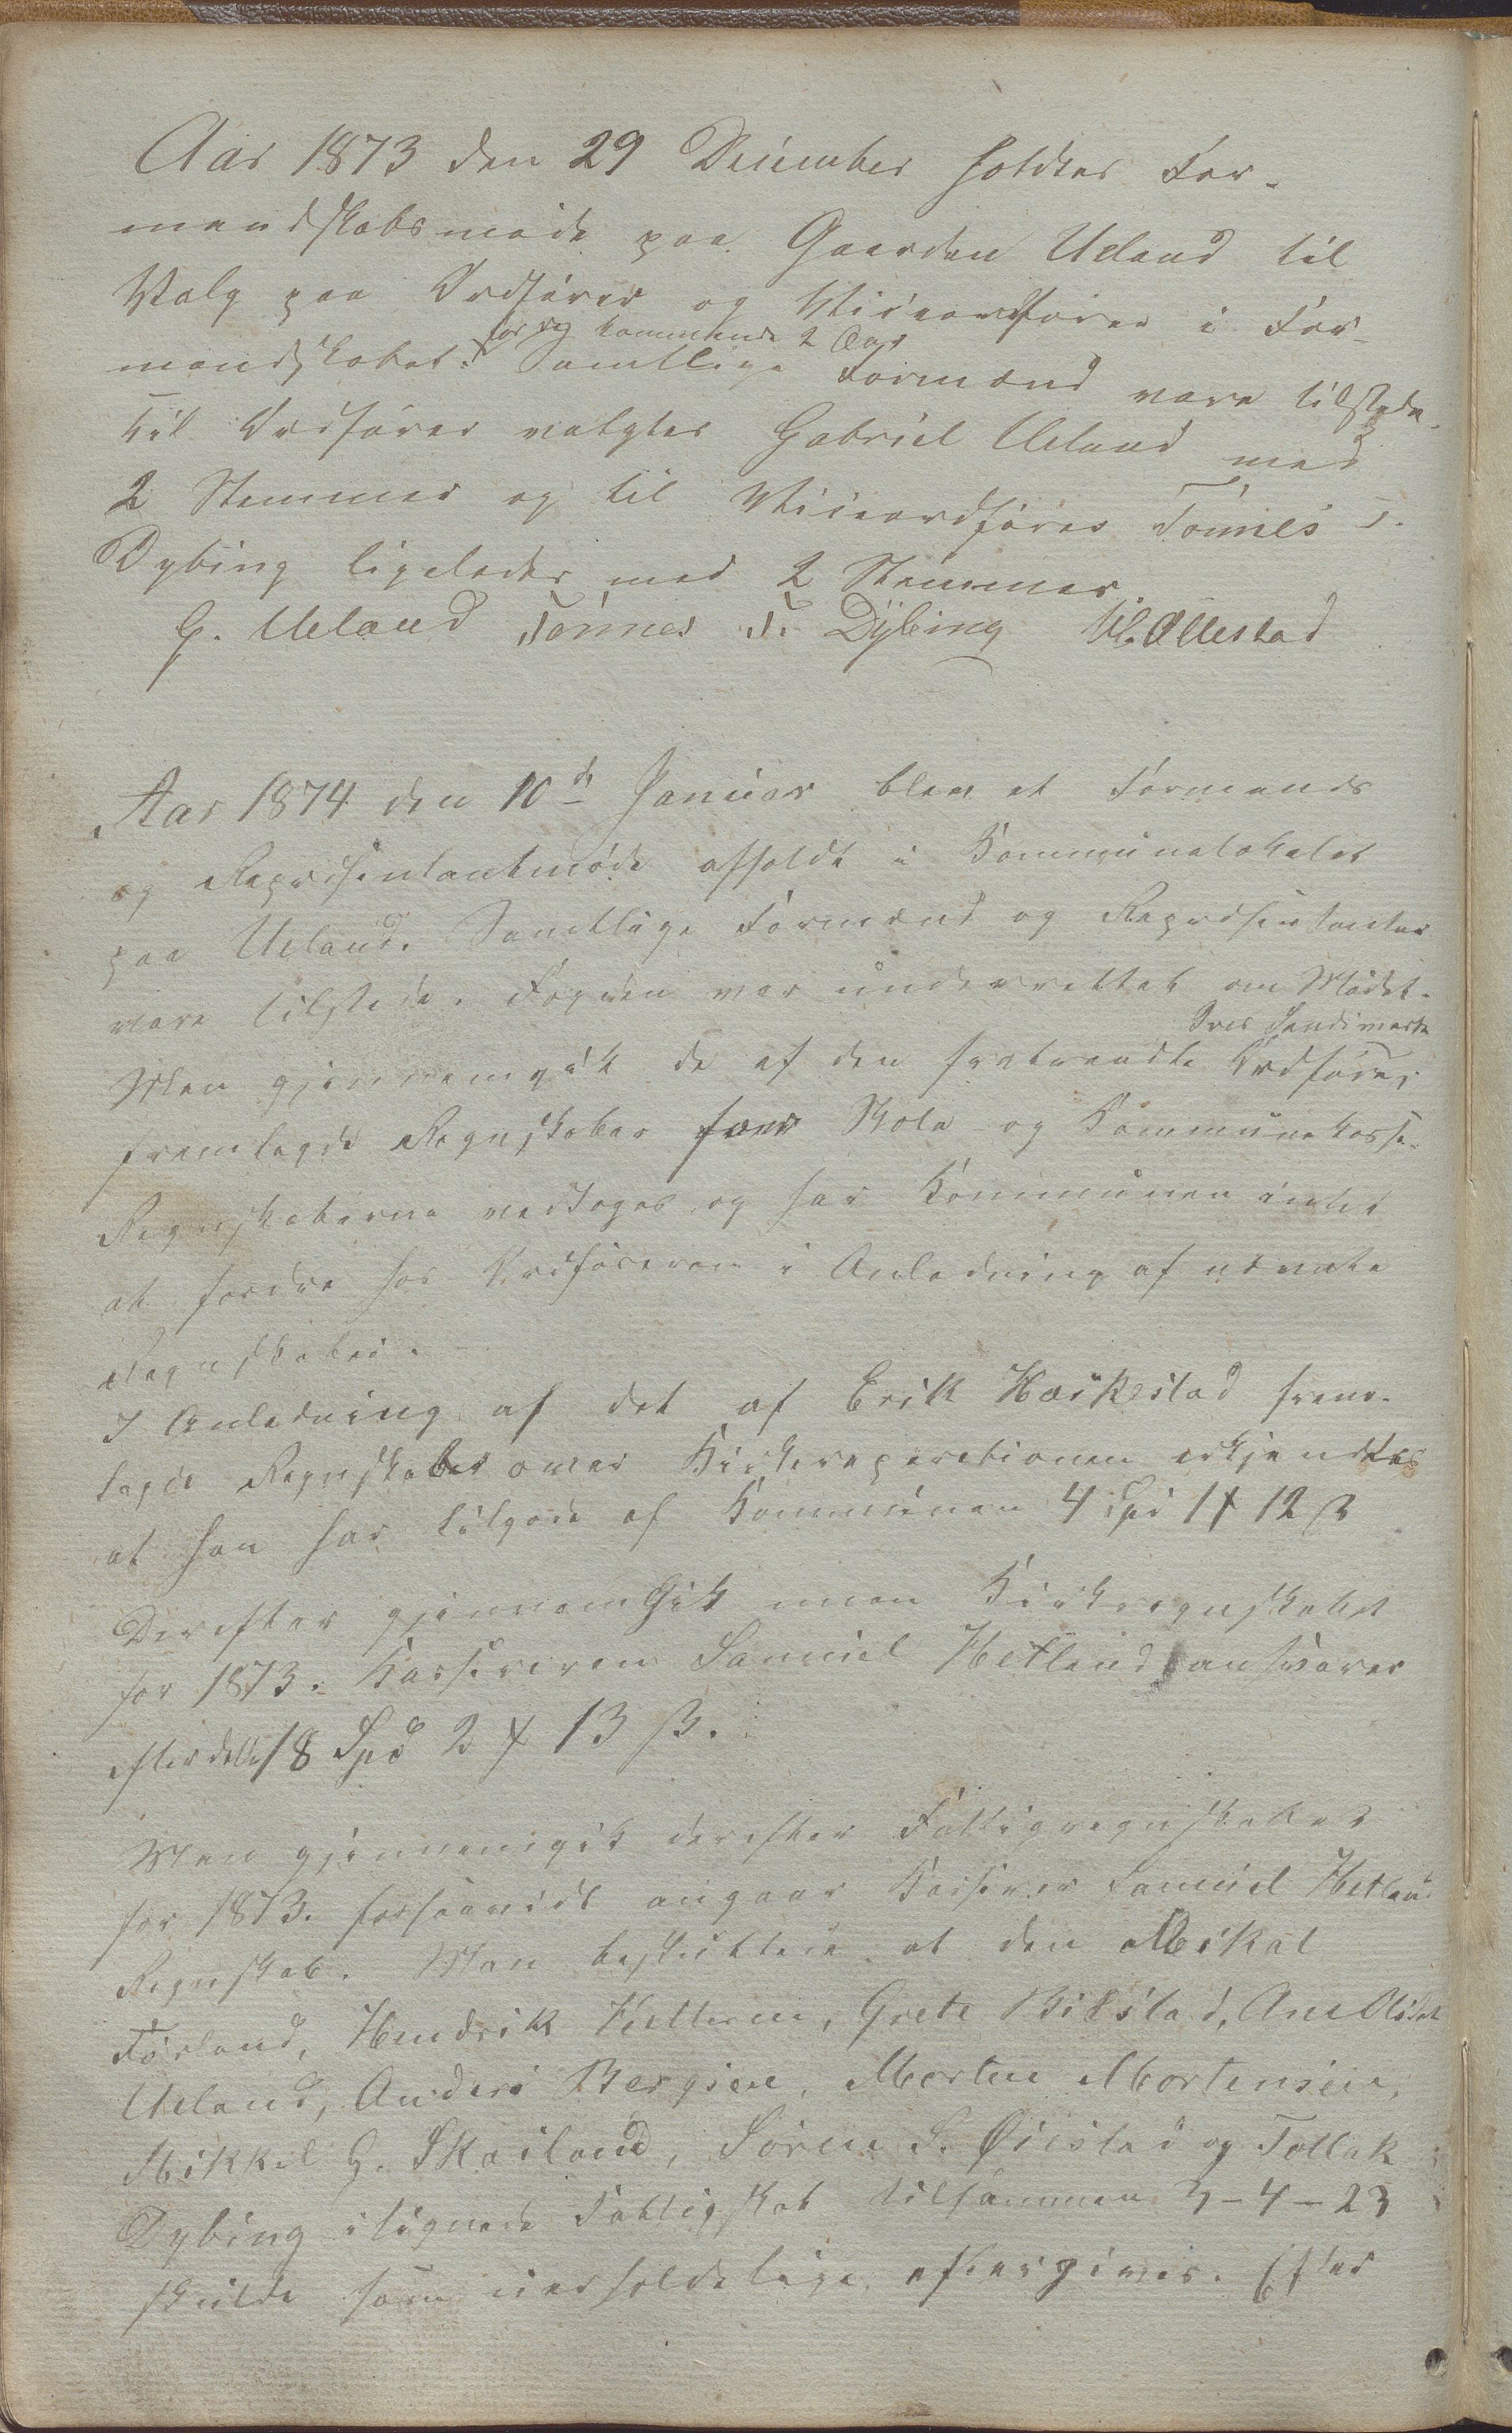 Aar 1873 den 29 December holdtes For-
mandskabsmøde paa Gaarden Ueland til
Valg paa Ordfører og Viceordfører i For-
for de kommende 2 Aar
mandskabet. Samtlige Formænd vare tilstede.
Til Ordfører valgtes Gabriel Ueland med
2 Stemmer og til Viceordfører Tønnes T.
Dybing ligeledes med 2 Stemmer
G. Ueland Tønnes T. Dÿbing M. Ollestad
Aar 1874 den 10de Januar blev et Formands
og Repræsentantmøde afholdt i Kommunelokalet
paa Ueland. Samtlige Formænd og Repræsentanter
vare tilstede. Fogden var underrettet om Mødet.
Sven
Man gjennemgik de af den fratraadte Ordfører,
fremlagde Regnskaber for Skole og Kommunekasse.
Regnskaberne vedtoges og har Kommunen intet
at fordre hos Ordføreren i Anledning af nævnte
Regnskaber.
I Anledning af det af Erik Haikestad frem-
lagde Regnskaber over Kirkereparationen erkjendtes
at han har tilgode af Kommunen 4 Spd 1 ort 12 ß
Derefter gjennemGik man Kirkeregnskabet
for 1873. Kassereren Samuel Hetland ansvarer
efter dette 18 Spd 2 ort 13 ß.
Man gjennemgik derefter Fattigregnskabet
for 1873. forsaavidt angaar Kasserer Samuel Hetland
Regnskab. Man besluttede at den Mikal
Førland, Hendrik, Grete Bilstad, Ane
Ueland, Anders Bergsen, Morten Mortensen,
Mikkel G. Skailand, Søren S. Øiestad og Tollak
Dybing ilignede Fattigskat tilsammen 3-4-23
skulde som uerholdelige eftergives. Efter